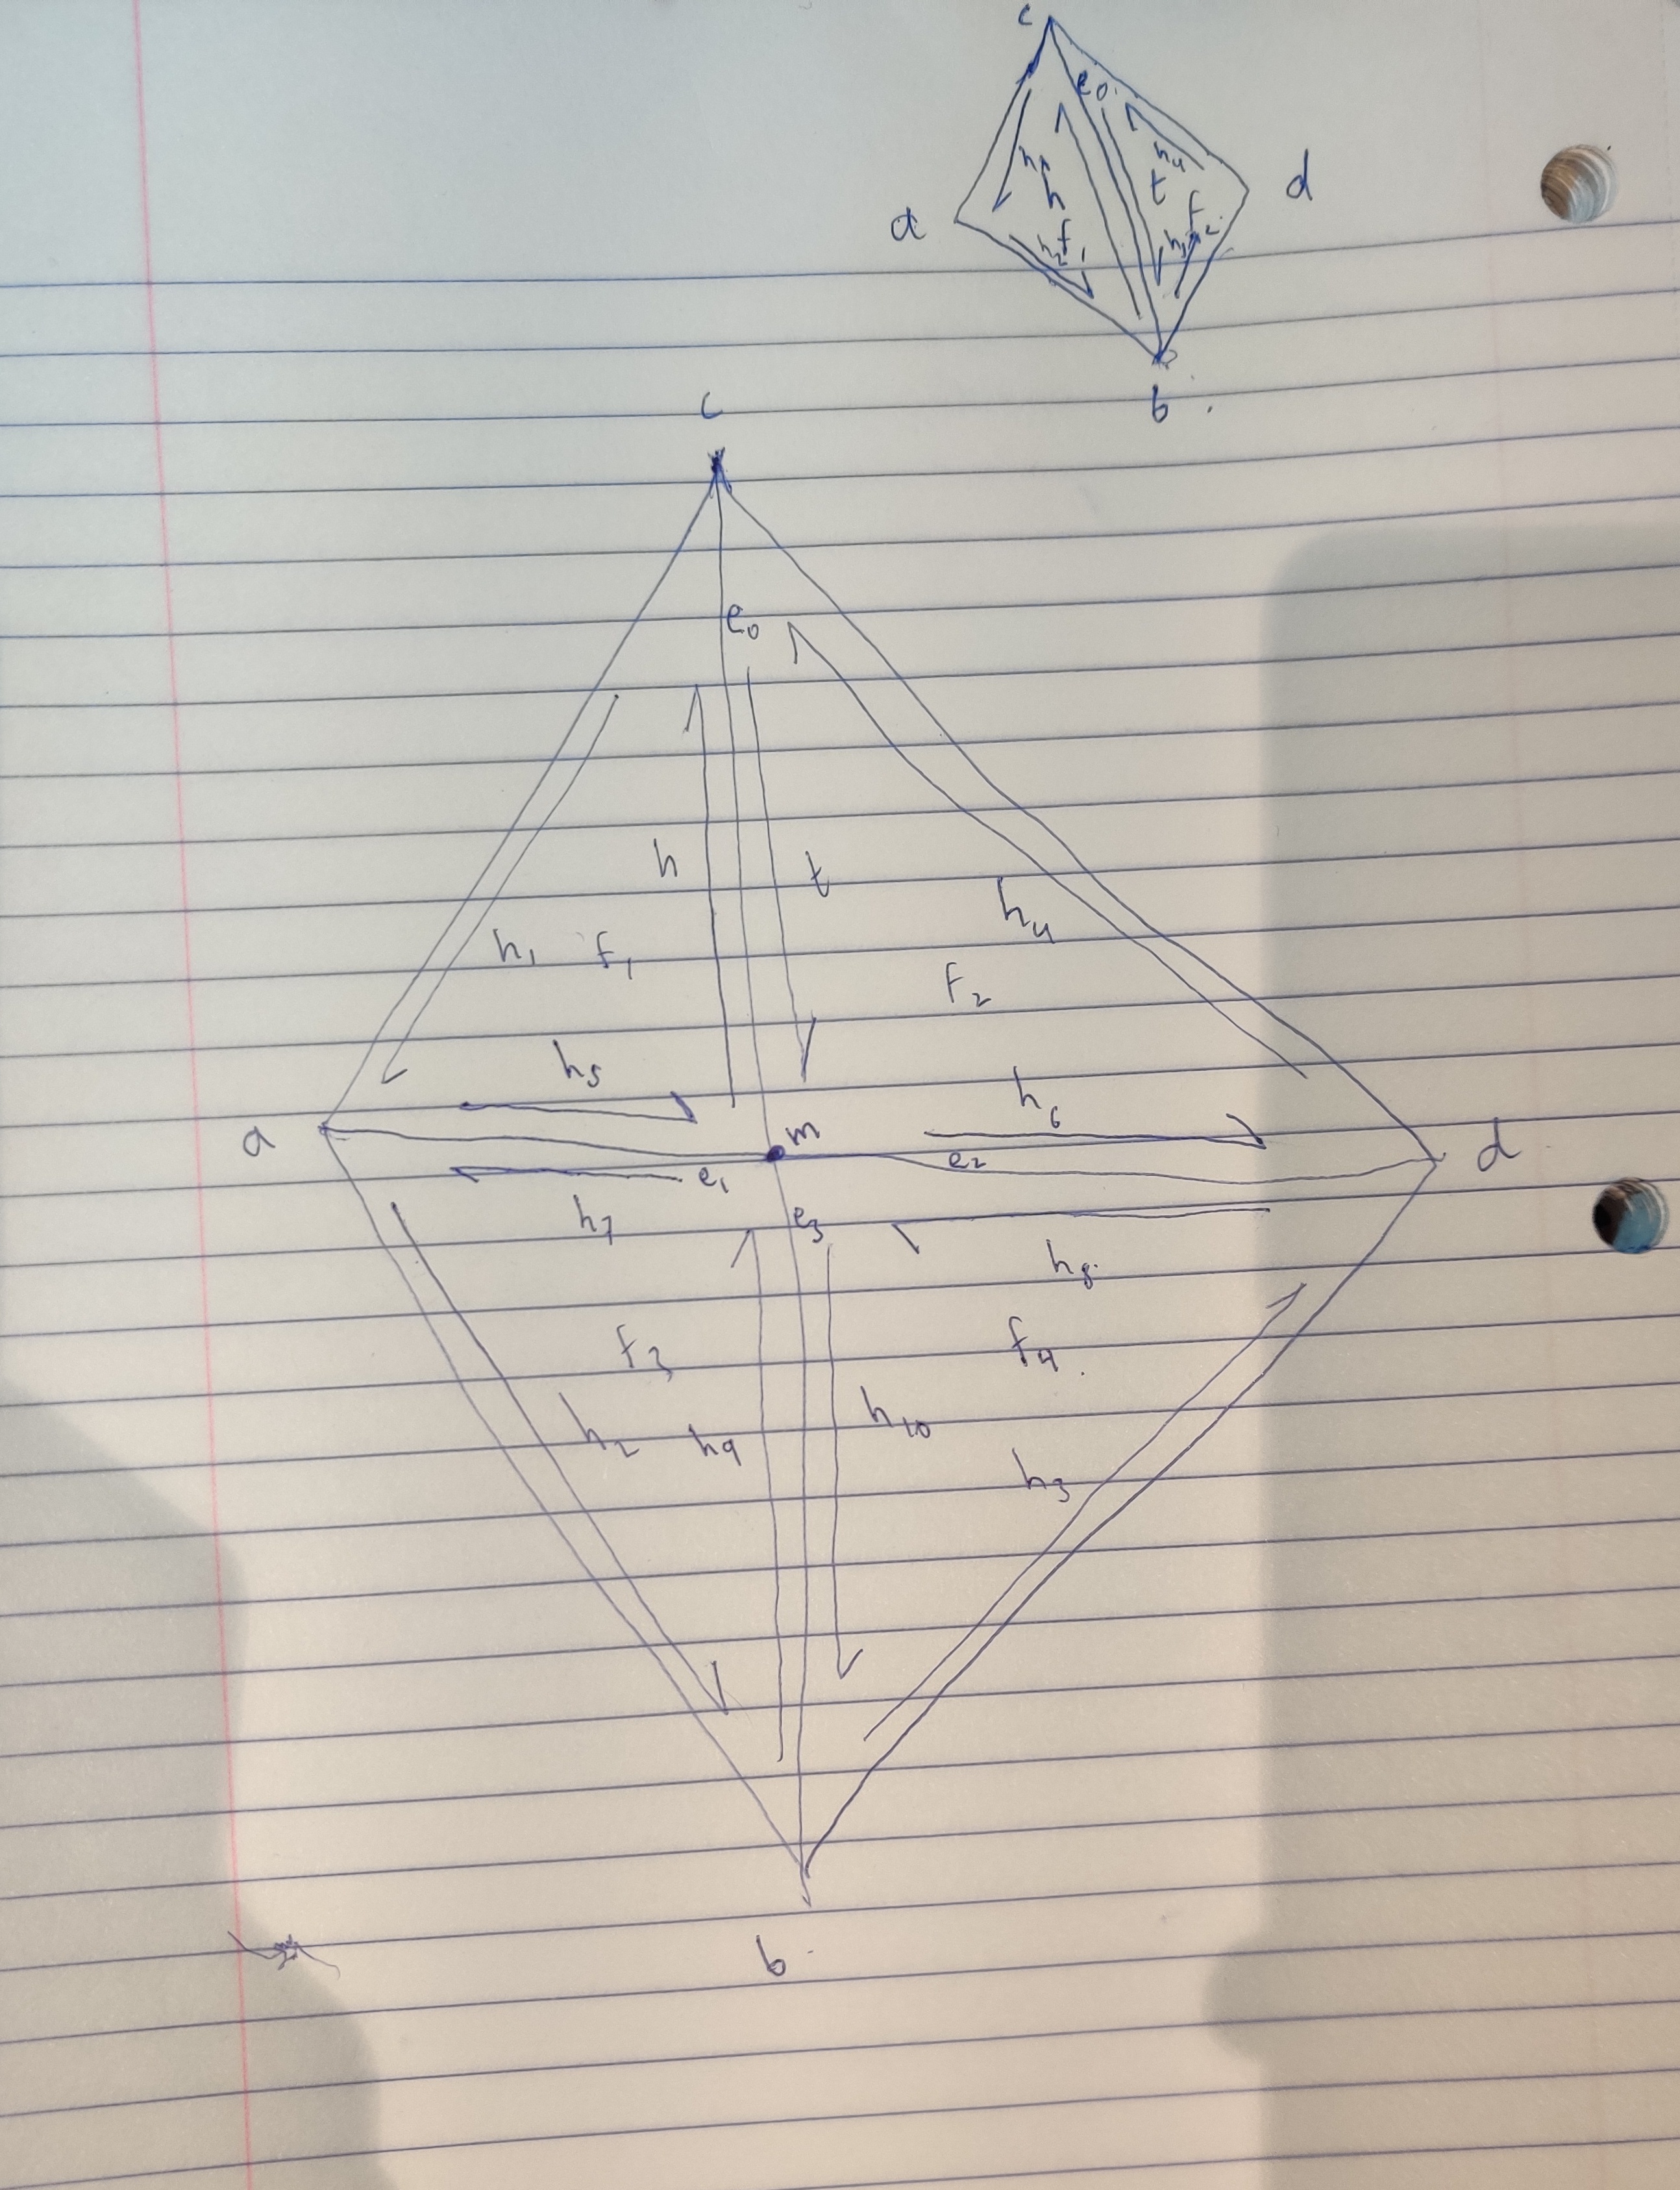 c
e0
h1
h
h4
t
a
d
h2 f1
h3 f2
b
c
e0
h
t
h4
h1 f1
f2
h5
h6
a
m
d
e1
e2
h7
e3
h8
f3
f4
h2
h9
h10
h3
b